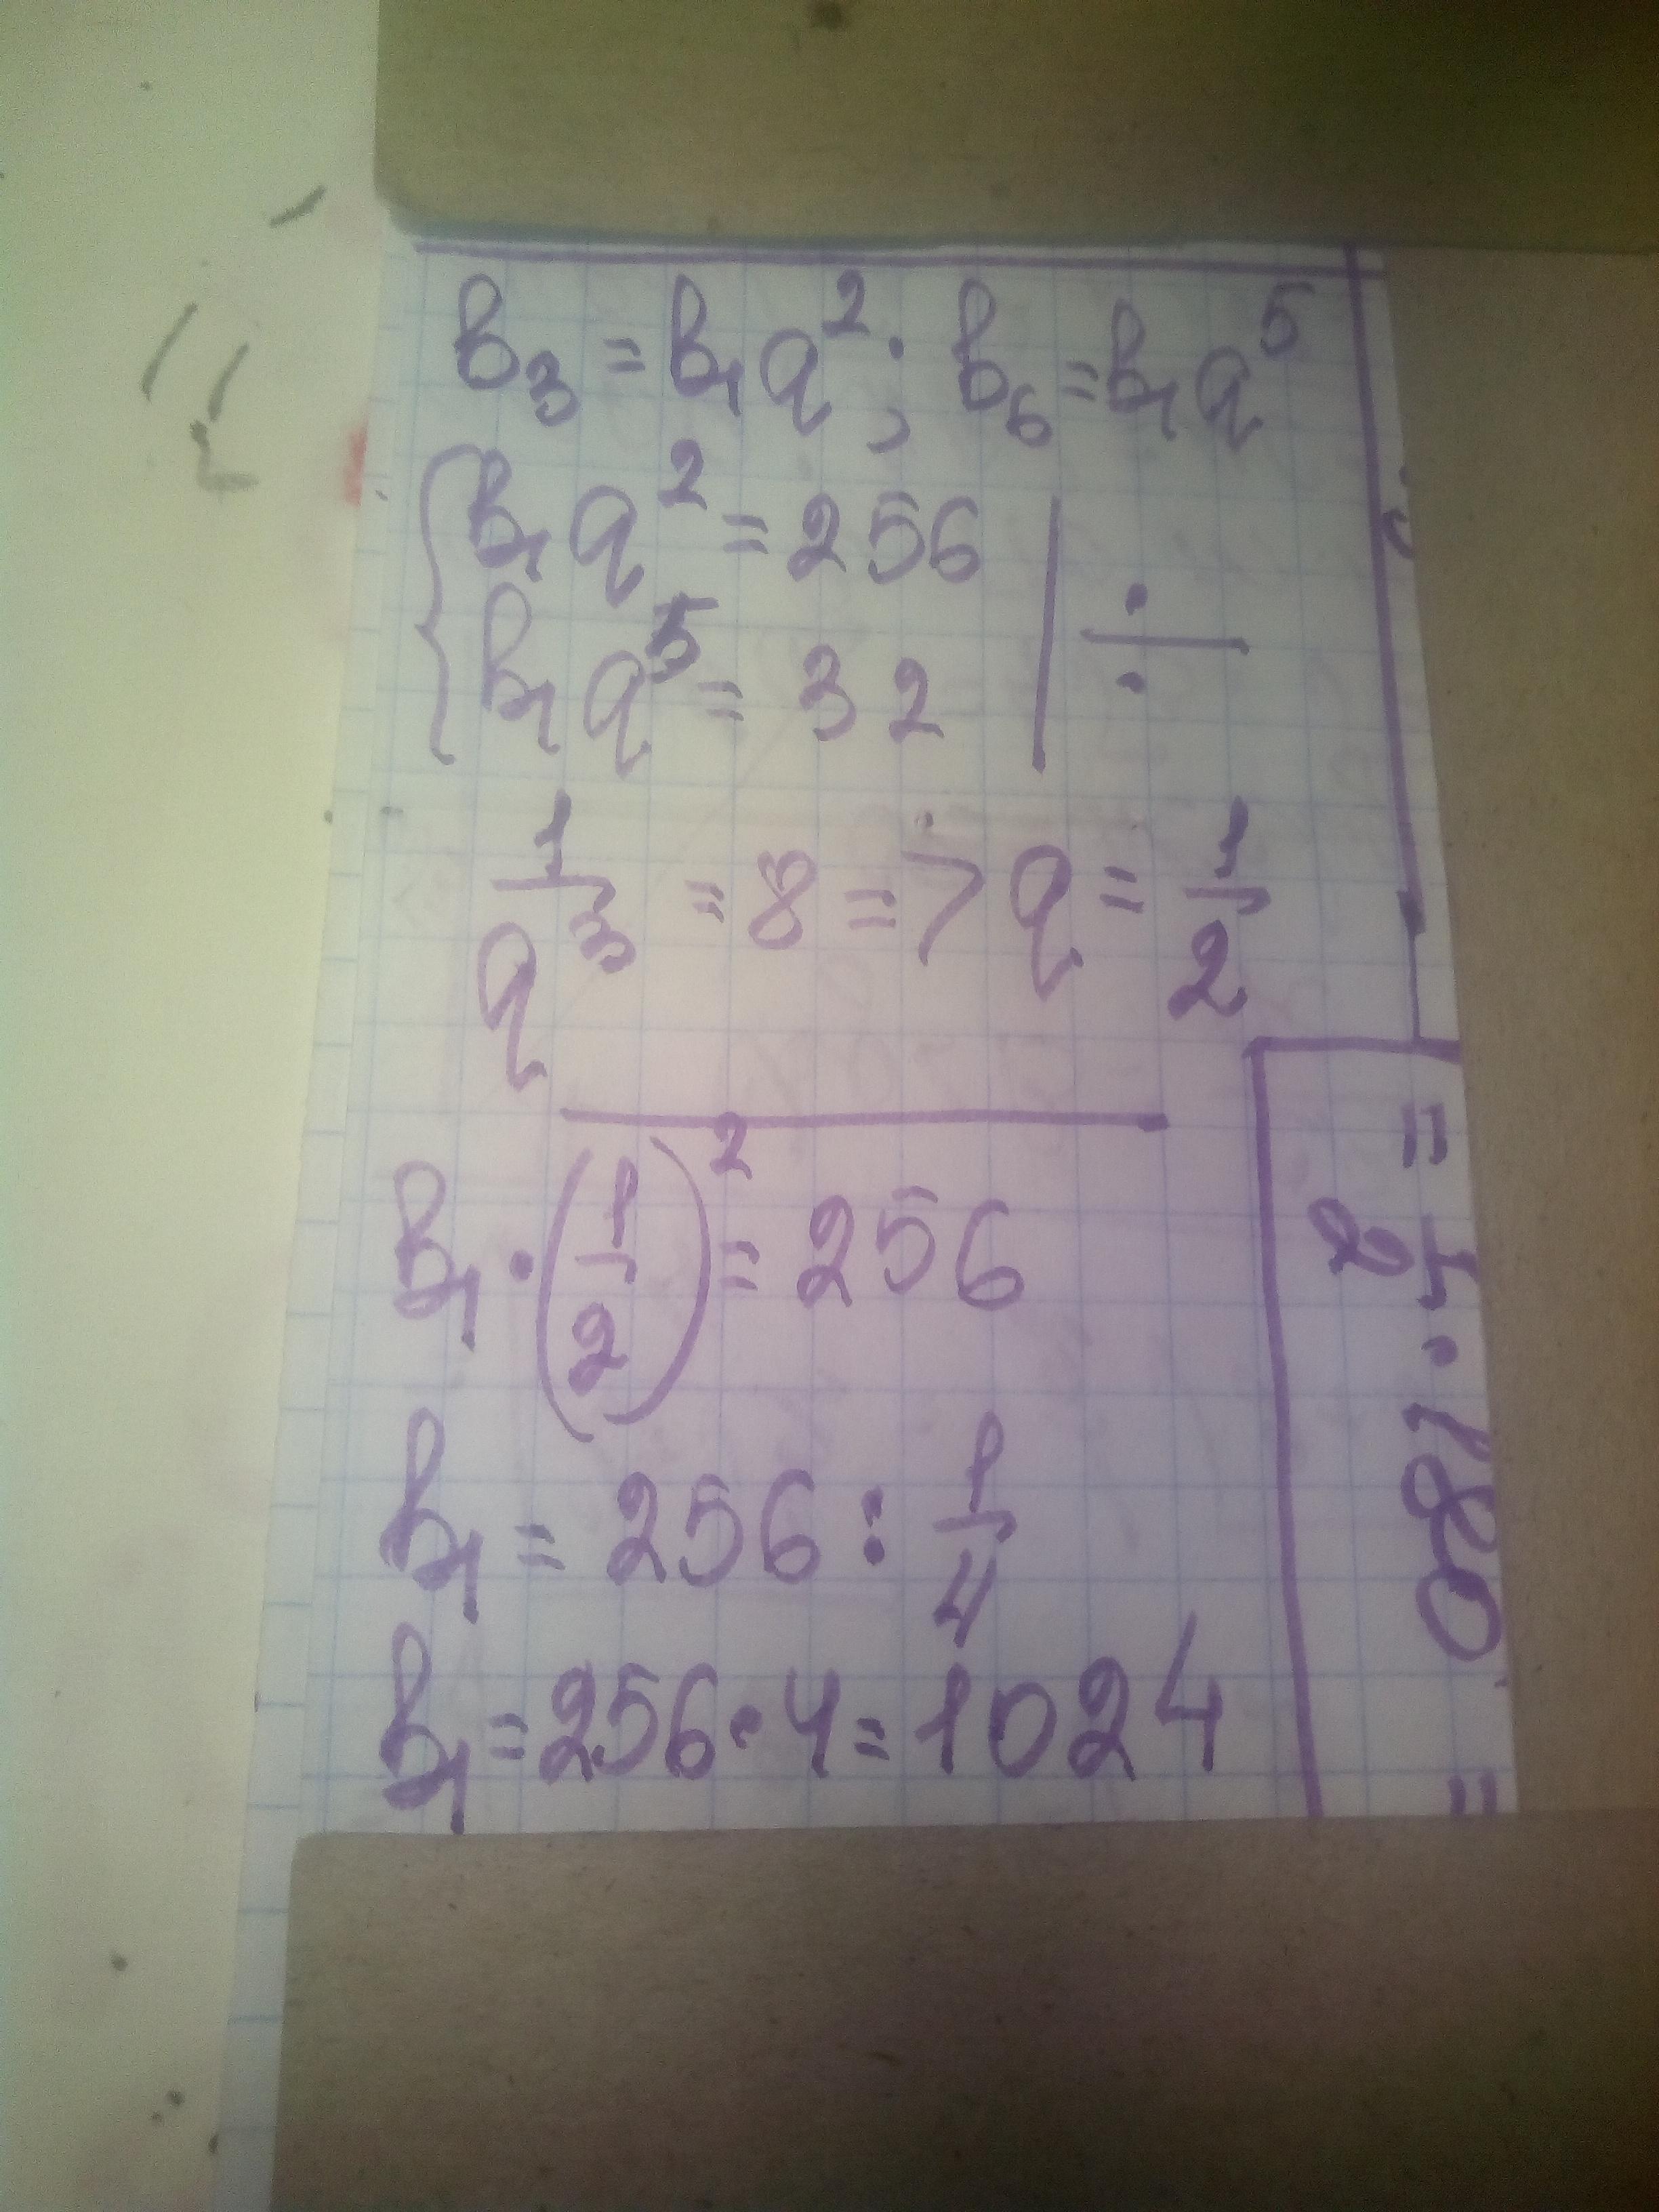 b₃ = b₁q²; b₆ = b₁q⁵
{ b₁q² = 256
{ b₁q⁵ = 32 | ÷
1/q³ = 8 => q = 1/2
b₁ · (1/2)² = 256
b₁ = 256 : 1/4
b₁ = 256 · 4 = 1024
= 1/2 · 180
=